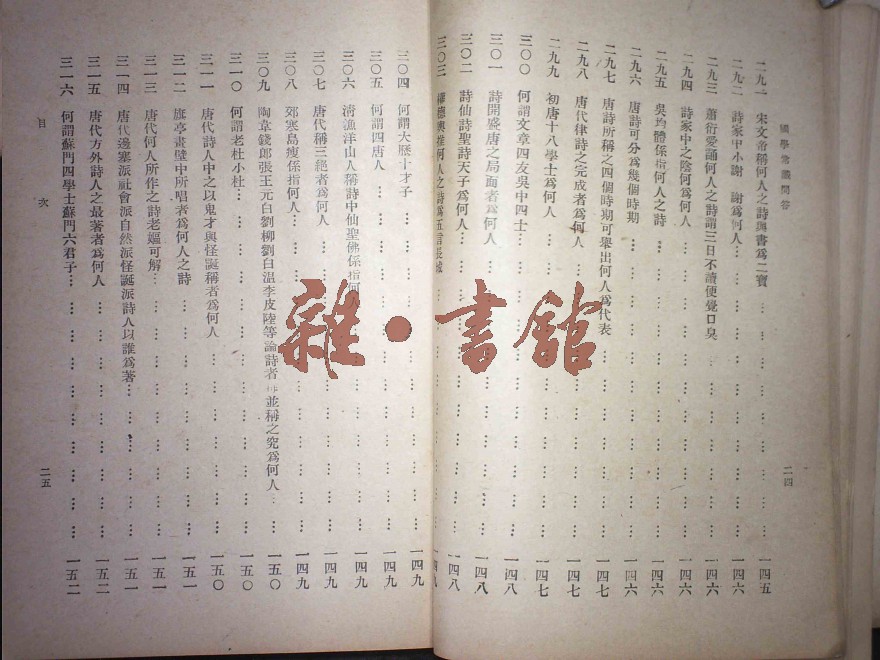 國學常識問答
二四
二九一 宋文帝稱何人之詩與書為二寶… … … … … … … 一四五
二九二 詩家中小謝 謝為何人… … … … … … … … 一四六
二九三 蕭衍愛誦何人之詩謂三日不讀便覺口臭 … … … … … 一四六
二九四 詩家中之陰何為何人 … … … … … … … … 一四六
二九五 吳均體係指何人之詩 … … … … … … … … 一四六
二九六 唐詩可分為幾個時期 … … … … … … … … 一四六
二九七 唐詩所稱之四個時期可舉出何人為代表 … … … … … 一四七
二九八 唐代律詩之完成者為何人 … … … … … … … 一四七
二九九 初唐十八學士為何人 … … … … … … … … 一四七
三〇〇 何謂文章四友吳中四士… … … … … … … … 一四八
三〇一 詩開盛唐之局面者為何人 … … … … … … … 一四八
三〇二 詩仙詩聖詩天子為何人… … … … … … … … 一四八
三〇三 權德輿推何人之詩為五言長城 … … … … … … 一四八
三〇四 何謂大歷十才子 … … … … … … … … … 一四九
三〇五 何謂四唐人 … … … … … … … … … … 一四九
三〇六 清漁洋山人稱詩中仙聖佛係指何人 … … … … … … 一四九
三〇七 唐代稱三絕者為何人 … … … … … … … … 一四九
三〇八 郊寒島瘦係指何人… … … … … … … … … 一四九
三〇九 陶韋錢郎張王元白劉柳劉白溫李皮陸等論詩者 並稱之究為何人… … 一五〇
三一〇 何謂老杜小杜… … … … … … … … … … 一五〇
三一一 唐代詩人中之以鬼才與怪誕稱者為何人 … … … … … 一五〇
三一二 旗亭畫壁中所唱者為何人之詩 … … … … … … 一五一
三一三 唐代何人所作之詩老嫗可解… … … … … … … 一五一
三一四 唐代邊塞派社會派自然派怪誕派詩人以誰為著… … … … 一五一
三一五 唐代方外詩人之最著者為何人 … … … … … … 一五二
三一六 何謂蘇門四學士蘇門六君子… … … … … … … 一五二
目 次
二五
雜・書館